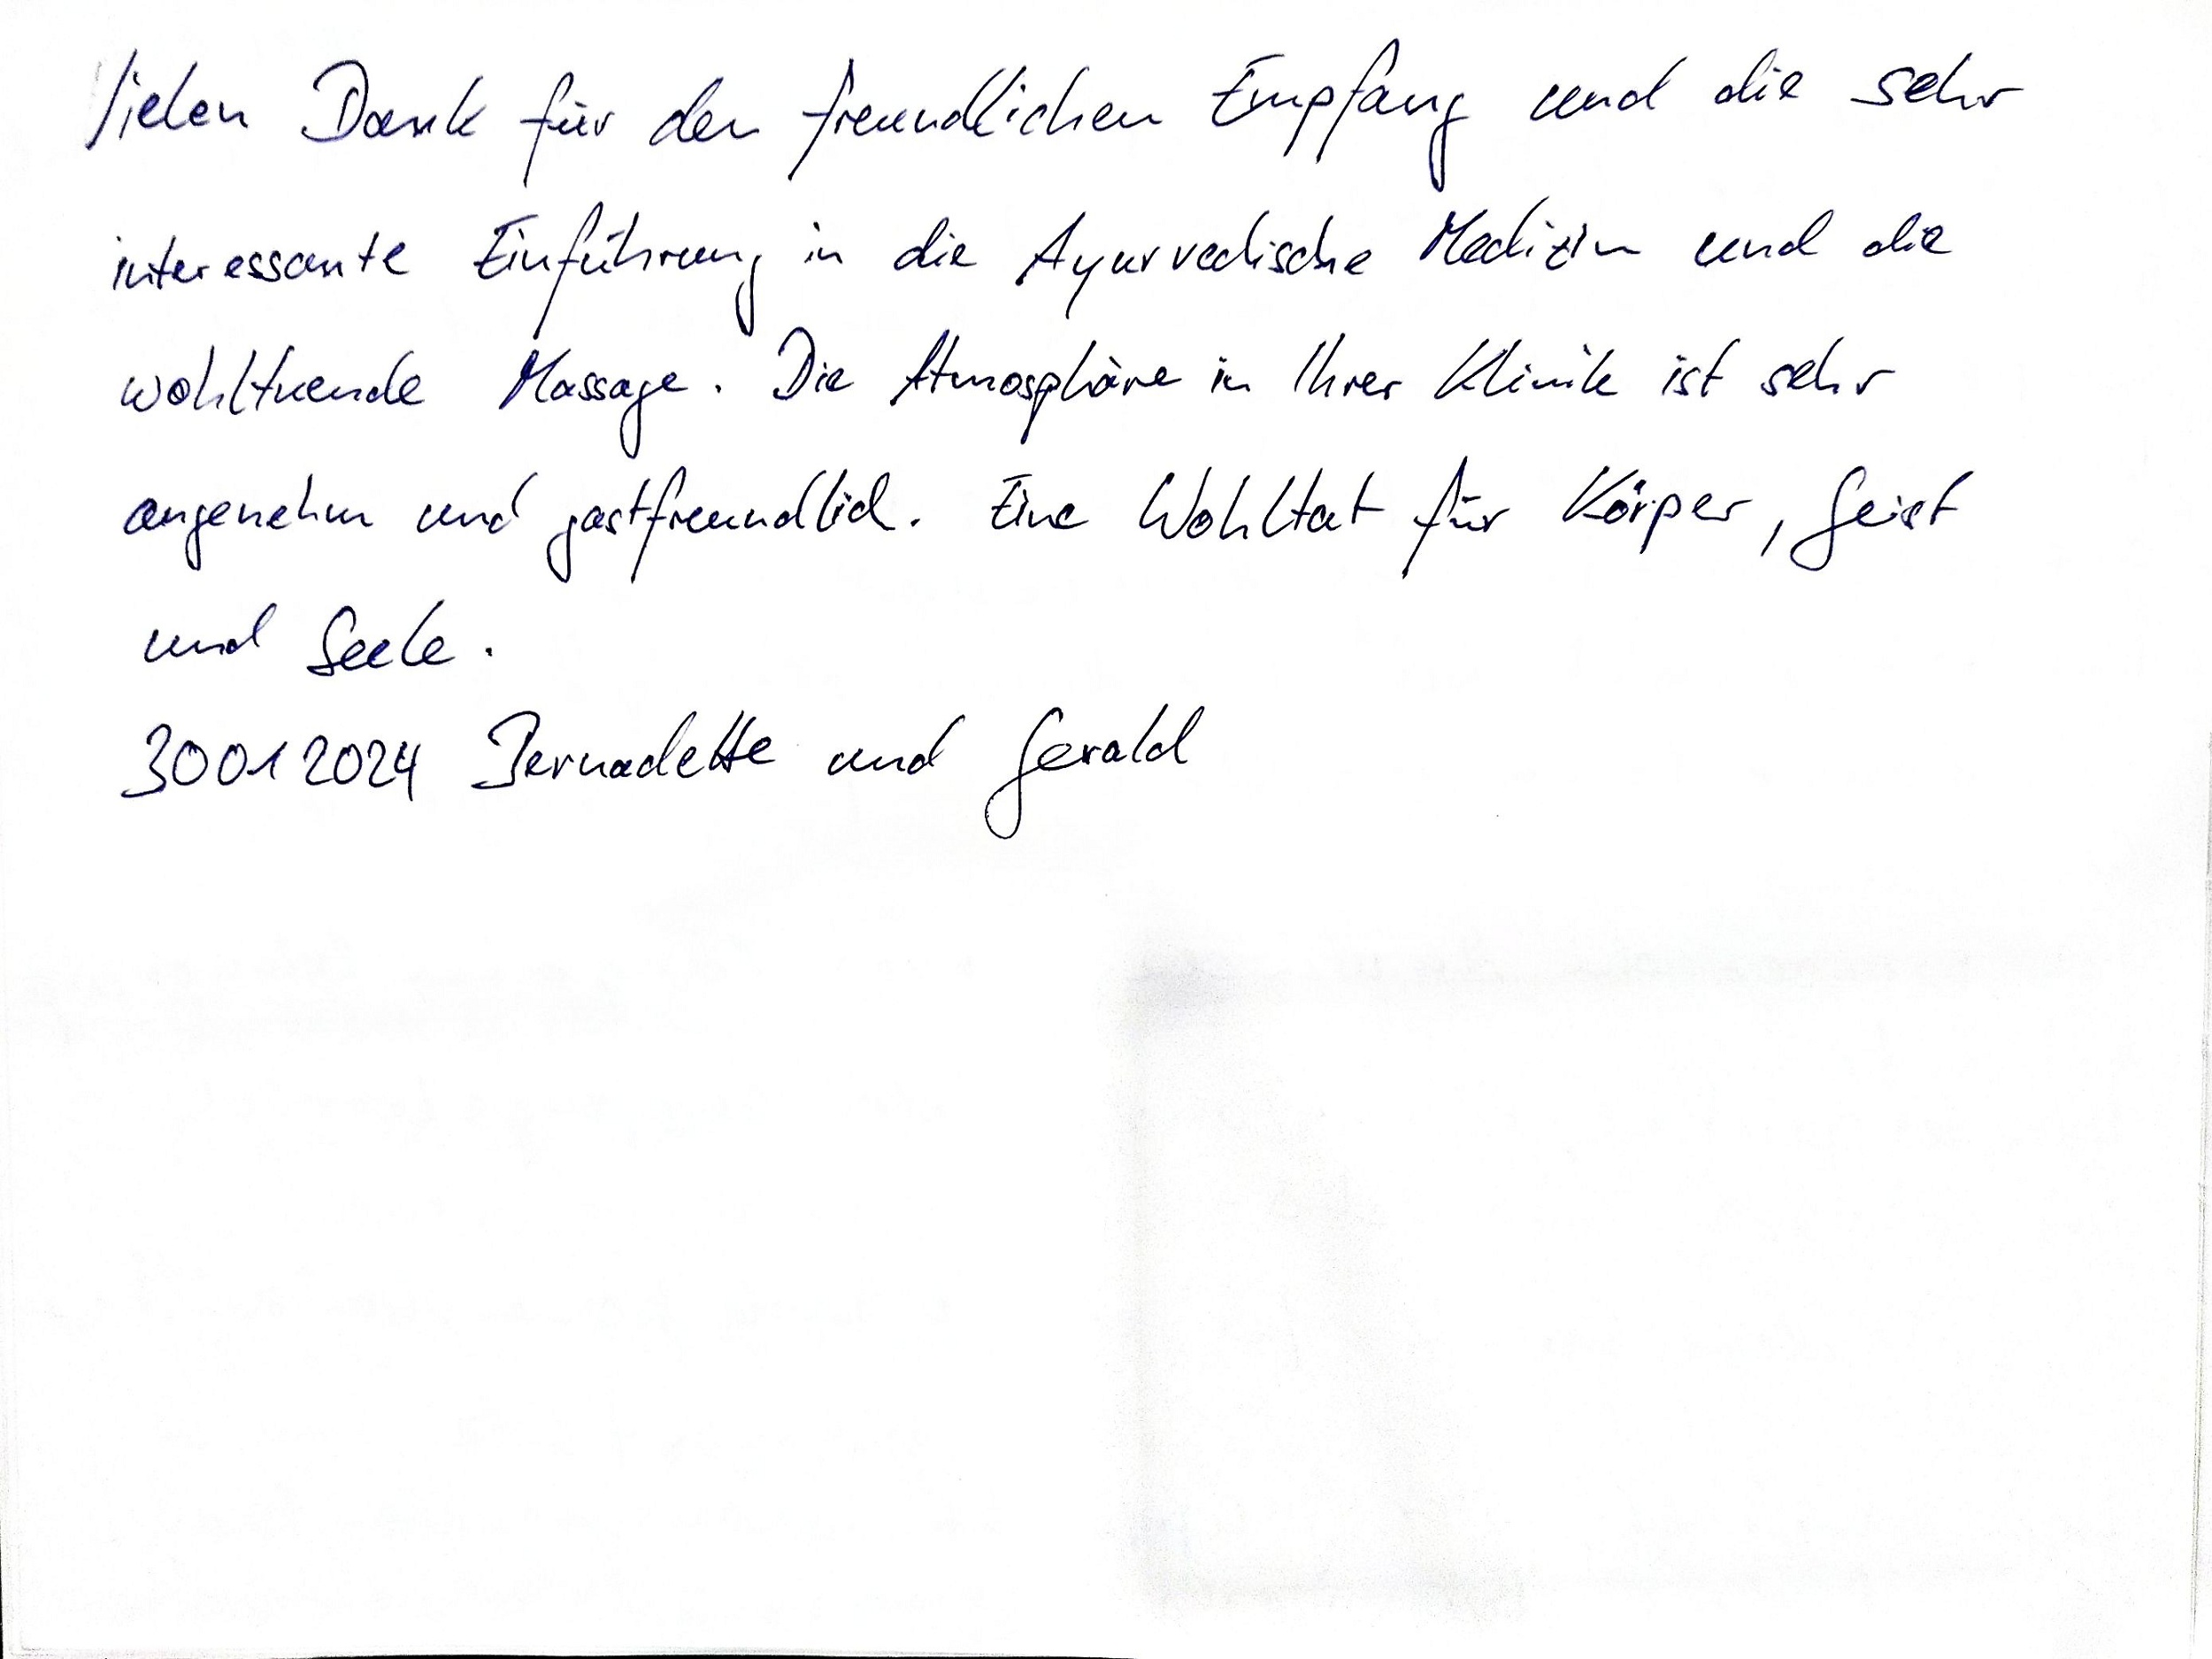 Vielen Dank für den freundlichen Empfang und die sehr
interessante Einführung in die Ayurvedische Medizin und die
wohltuende Massage. Die Atmosphäre in Ihrer Klinik ist sehr
angenehm und gastfreundlich. Eine Wohltat für Körper, Geist
und Seele.
30012024 Bernadette und Gerald